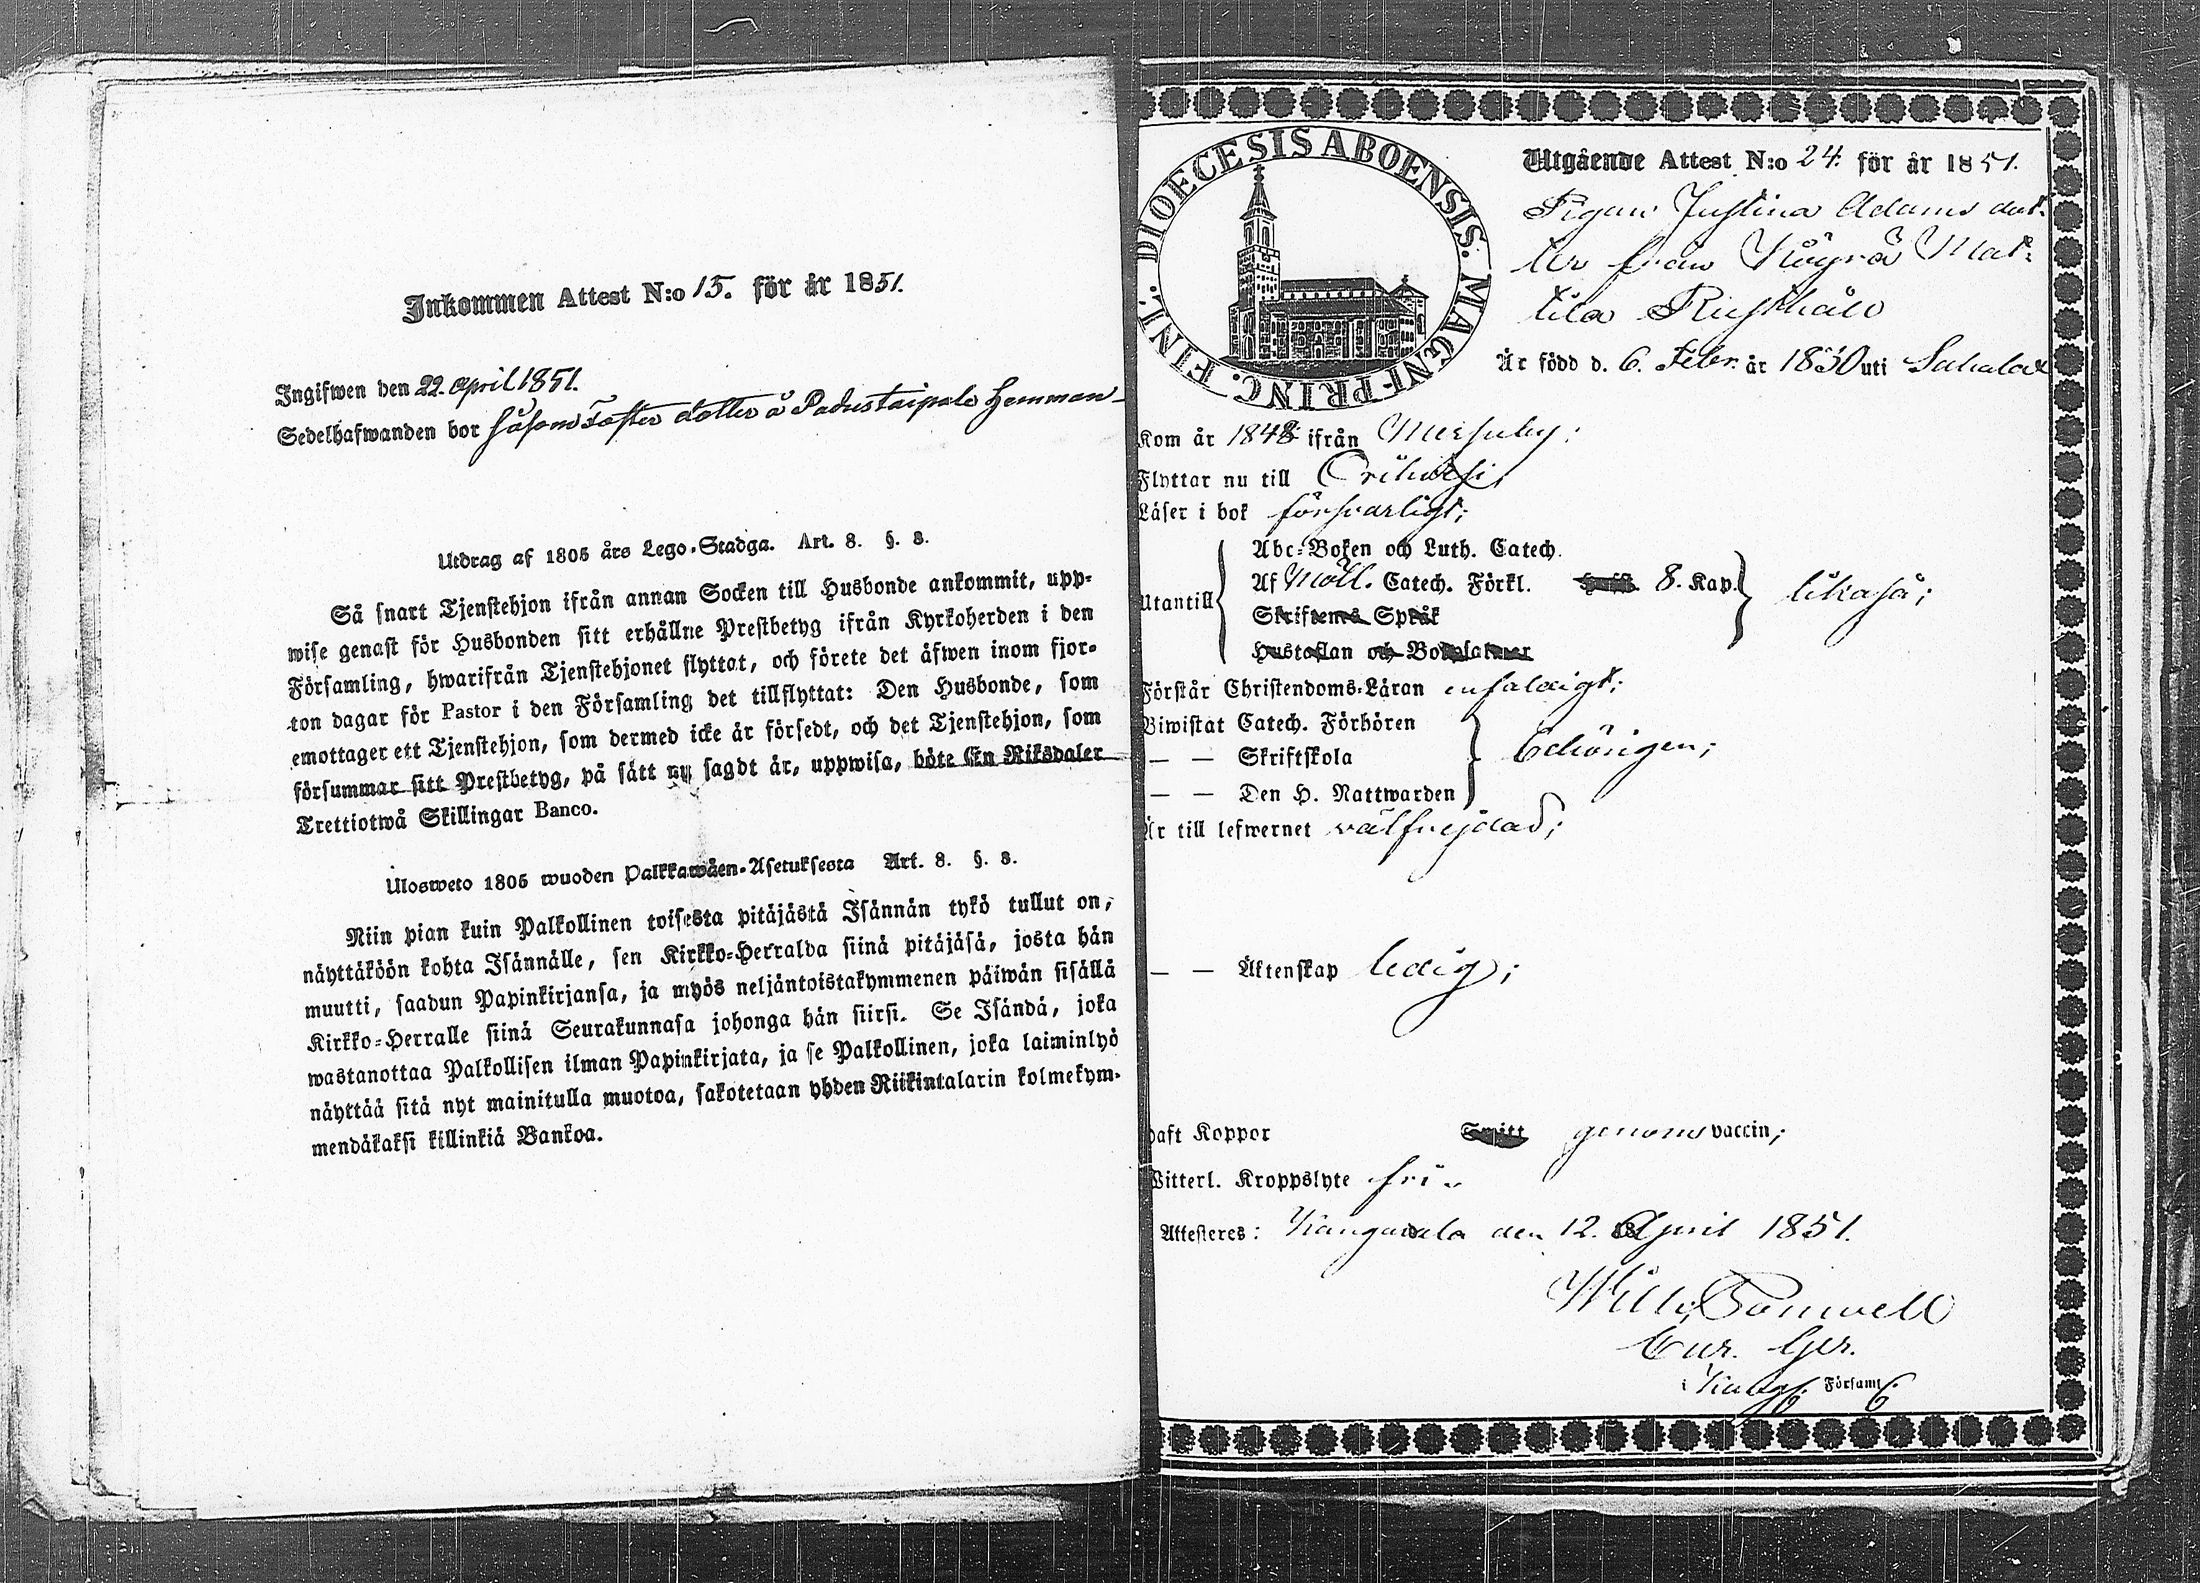 Inkommen Attest N:o 15. för år 1851.
Ingifwen den 22. April 1851.
Sedelhafwanden bor såsom Fosterdotter å Padustaipale Hemman
Utdrag af 1805 års Lego-Stadga. Art. 8. §. 8.
Så snart Tjenstehjon ifrån annan Socken till Husbonde ankommit, upp-
wise genast för Husbonden sitt erhållne Prestbetyg ifrån Kyrkoherden i den
Församling, hwarifrån Tjenstehjonet flyttat, och förete det äfwen inom fjor-
ton dagar för Pastor i den Församling det tillflyttat: Den Husbonde, som
emottager ett Tjenstehjon, som dermed icke är försedt, och det Tjenstehjon, som
försummar sitt Prestbetyg, på sätt nu sagdt är, uppwisa, böte En Riksdaler
Trettiotwå Skillingar Banco.
Ulosweto 1805 wuoden Palkkawäen-Asetuksesta Art. 8. §. 8.
Niin pian kuin Palkollinen toisesta pitäjästä Isännän tykö tullut on,
näyttäköön kohta Isännälle, sen Kirkko-Herralda siinä pitäjäsä, josta hän
muutti, saadun Papinkirjansa, ja myös neljäntoistakymmenen päiwän sisällä
Kirkko-Herralle siinä Seurakunnasa johonga hän siirsi. Se Isändä, joka
wastanottaa Palkollisen ilman Papinkirjata, ja se Palkollinen, joka laiminlyö
näyttää sitä nyt mainitulla muotoa, sakotetaan yhden Riikintalarin kolmekym-
mendäkaksi killinkiä Bankoa.
DIOECESIS ABOENSIS. MAGNI PRINC. FINL.
Utgående Attest N:o 24. för år 1851.
Pigan Justina Adams dot-
ter från Köyrä Mat-
tila Rusthåll
Är född d. 6. Febr. år 1830 uti Sahalax
Kom år 1848 ifrån Messuby;
Flyttar nu till Orihvesi,
Läser i bok försvarligt;
Abc-Boken och Luth. Catech.
Utantill Af Möll. Catech. Förkl. 8. Kap. likaså;
Skriftenes Språk
Hustaflan och Botpsalmer
Förstår Christendoms-Läran enfaldigt;
Biwistat Catech. Förhören
— — Skriftskola behörigen;
— — Den H. Nattwarden
Är till lefwernet välfrejdad;
— — Äktenskap ledig;
Haft Koppor Smitt genom vaccin;
Witterl. Kroppslyte fri.
Attesteres: Kangasala den 12. April 1851.
Wilh.
Cur. Ger.
i Kangs. Församl